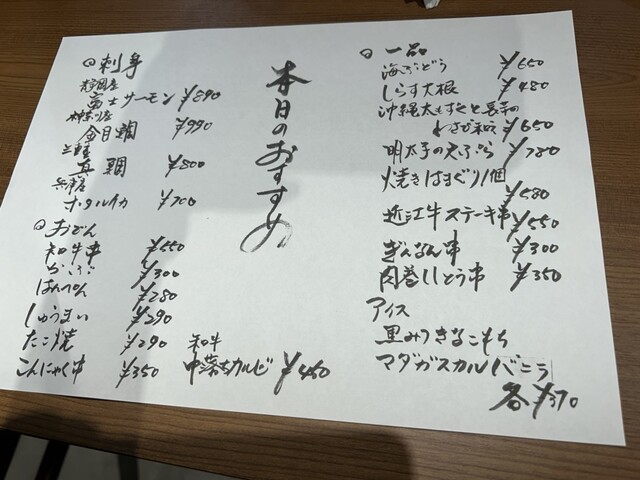 本日のおすすめ
一品
海ぶどう ¥650
しらす大根 ¥480
沖縄太もずくと長芋の
わさび和え ¥650
明太子の天ぷら ¥780
焼きはまぐり1個
¥580
近江牛ステーキ串 ¥550
ぎんなん串 ¥300
肉巻ししとう串 ¥350
アイス
黒みつきなこもち
マダガスカルバニラ
各¥370
刺身
静岡産
富士サーモン ¥890
神奈川産
金目鯛 ¥990
三重産
真鯛 ¥800
兵庫産
ホタルイカ ¥700
おでん
和牛串 ¥550
¥300
はんぺん ¥280
しゅうまい ¥290
たこ焼 ¥290
こんにゃく串 ¥350
和牛
中落ちカルビ ¥460